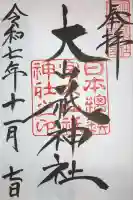 奉拝
日本總鎮守
大山祇神社
令和七年十一月七日